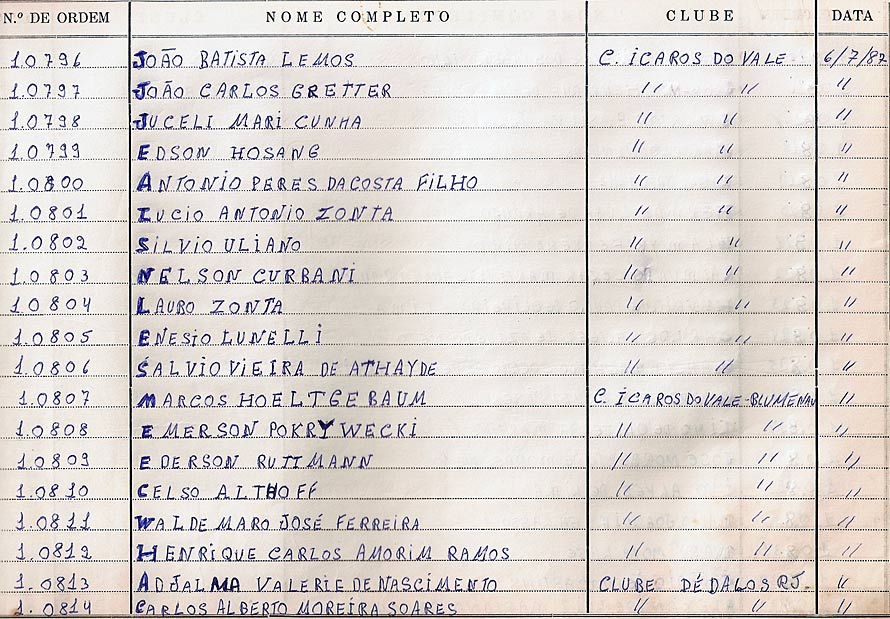 N.º DE ORDEM NOME COMPLETO CLUBE DATA
1.0796 JOÃO BATISTA LEMOS C. ÍCAROS DO VALE 6/7/82
1.0797 JOÃO CARLOS GRETTER " " "
1.0798 JUCELI MARI CUNHA " " "
1.0799 EDSON HOSANG " " "
1.0800 ANTONIO PERES DA COSTA FILHO " " "
1.0801 LUCIO ANTONIO ZONTA " " "
1.0802 SILVIO ULIANO " " "
1.0803 NELSON CURBANI " " "
1.0804 LAURO ZONTA " " "
1.0805 ENESIO LUNELLI " " "
1.0806 SALVIO VIEIRA DE ATHAYDE " " "
1.0807 MARCOS HOELTGEBAUM C. ÍCAROS DO VALE-BLUMENAU "
1.0808 EMERSON POKRYWECKI " " "
1.0809 EDERSON RUTTMANN " " "
1.0810 CELSO ALTHOFF " " "
1.0811 WALDEMARO JOSÉ FERREIRA " " "
1.0812 HENRIQUE CARLOS AMORIM RAMOS " " "
1.0813 ADJALMA VALERIE DE NASCIMENTO CLUBE DÉDALOS RJ. "
1.0814 CARLOS ALBERTO MOREIRA SOARES " " "